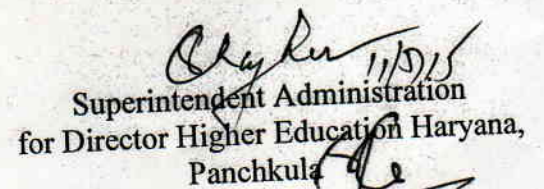 11/5/15
Superintendent Administration
for Director Higher Education Haryana,
Panchkula